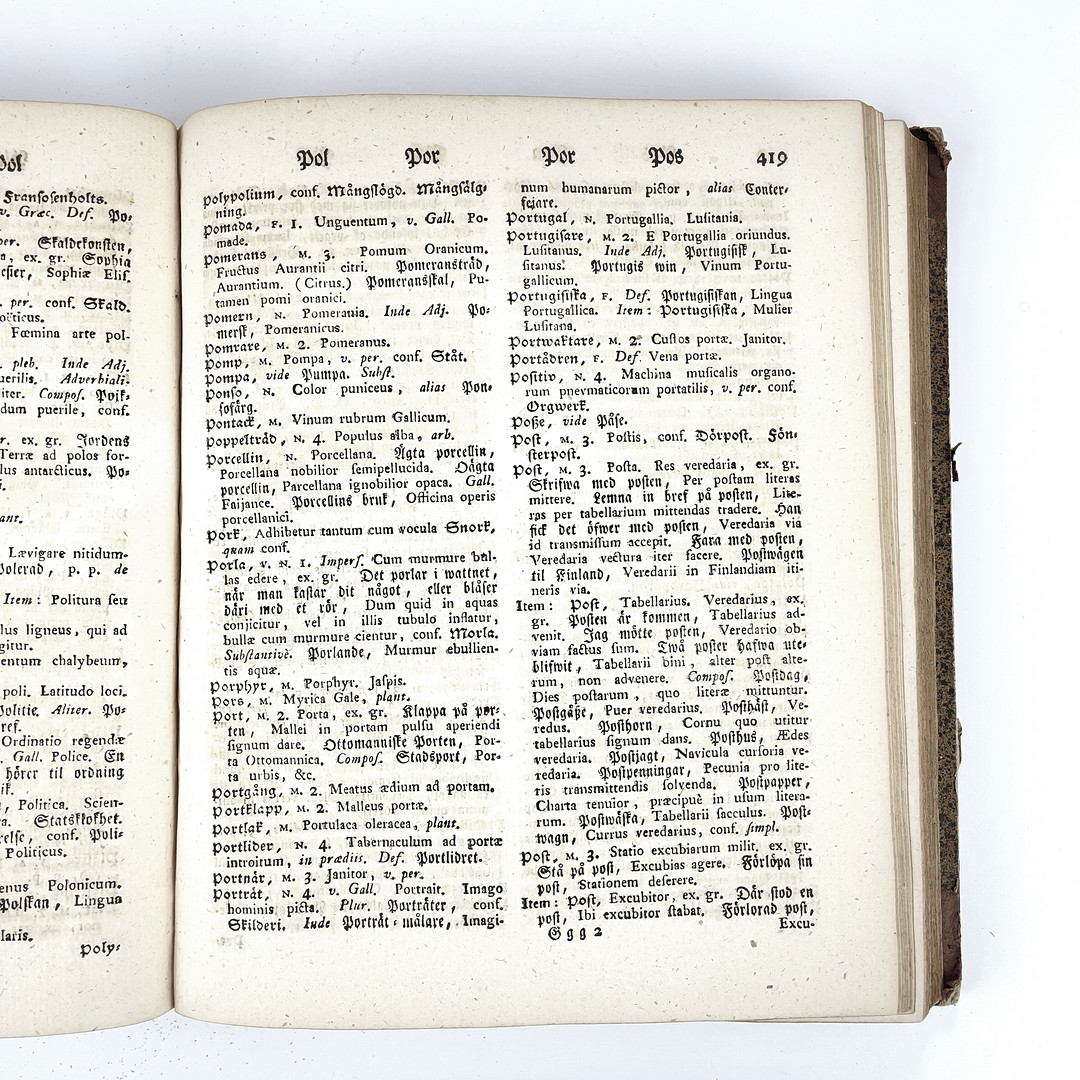 Pol
Fransosenholts.
v. Græc. Def. Po-
per. Skaldekonsten,
a, ex. gr. Sophia
esier, Sophiæ Elis.
per. conf. Skald.
oëticus.
Fœmina arte pol-
pleb. Inde Adj.
uerilis. Adverbiali-
iter. Compos. Pojk-
dum puerile, conf.
r. ex. gr. Jordens
Terræ ad polos for-
lus antarcticus. Po-
ant.
Lævigare nitidum-
Polerad, p. p. de
Item: Politura seu
lus ligneus, qui ad
gitur.
entum chalybeum,
poli. Latitudo loci.
Politie. Aliter. Po-
ref.
Ordinatio regendæ
. Gall. Police. En
hörer til ordning
ik.
, Politica. Scien-
a. Statsklokhet.
relse, conf. Poli-
Politicus.
enus Polonicum.
Polskan, Lingua
laris.
Poly-
Pol Por
Por Pos 419
Polypolium, conf. Mångslögd. Mångsälg-
ning.
Pomada, F. 1. Unguentum, v. Gall. Po-
made.
Pomerans, M. 3. Pomum Oranicum.
Fructus Aurantii citri. Pomeransträd,
Aurantium. (Citrus.) Pomeransskal, Pu-
tamen pomi oranici.
Pomern, N. Pomerania. Inde Adj. Po-
mersk, Pomeranicus.
Pomrare, M. 2. Pomeranus.
Pomp, M. Pompa, v. per. conf. Ståt.
Pompa, vide Pumpa. Subst.
Ponso, N. Color puniceus, alias Pon-
sofärg.
Pontack, M. Vinum rubrum Gallicum.
Poppelträd, N. 4. Populus alba, arb.
Porcellin, N. Porcellana. Ägta porcellin,
Porcellana nobilior semipellucida. Oägta
porcellin, Parcellana ignobilior opaca. Gall.
Faijance. Porcellins bruk, Officina operis
porcellanici.
Pork, Adhibetur tantum cum vocula Snork,
quam conf.
Porla, v. N. 1. Impers. Cum murmure bul-
las edere, ex. gr. Det porlar i wattnet,
när man kastar dit något, eller blåser
däri med et rör, Dum quid in aquas
conjicitur, vel in illis tubulo inflatur,
bullæ cum murmure cientur, conf. Morla.
Substantivè. Porlande, Murmur ebullien-
tis aquæ.
Porphyr, M. Porphyr. Jaspis.
Pors, M. Myrica Gale, plant.
Port, M. 2. Porta, ex. gr. Klappa på por-
ten, Mallei in portam pulsu aperiendi
signum dare. Ottomanniske Porten, Por-
ta Ottomannica. Compos. Stadsport, Por-
ta urbis, &c.
Portgång, M. 2. Meatus ædium ad portam.
Portklapp, M. 2. Malleus portæ.
Portlak, M. Portulaca oleracea, plant.
Portlider, N. 4. Tabernaculum ad portæ
introitum, in prædiis. Def. Portlidret.
Portnär, M. 3. Janitor, v. per.
Porträt, N. 4. v. Gall. Portrait. Imago
hominis picta. Plur. Porträter, conf.
Skilderi. Inde Porträt-målare, Imagi-
num humanarum pictor, alias Conter-
fejare.
Portugal, N. Portugallia. Lusitania.
Portugisare, M. 2. E Portugallia oriundus.
Lusitanus. Inde Adj. Portugisisk, Lu-
sitanus. Portugis win, Vinum Portu-
gallicum.
Portugisiska, F. Def. Portugisiskan, Lingua
Portugallica. Item: Portugisiska, Mulier
Lusitana.
Portwaktare, M. 2. Custos portæ. Janitor.
Portådren, F. Def. Vena portæ.
Positiv, N. 4. Machina musicalis organo-
rum pnevmaticorum portatilis, v. per. conf.
Orgwerk.
Poße, vide Påse.
Post, M. 3. Postis, conf. Dörpost. Fön-
sterpost.
Post, M. 3. Posta. Res veredaria, ex. gr.
Skrifwa med posten, Per postam literas
mittere. Lemna in bref på posten, Lite-
ras per tabellarium mittendas tradere. Han
fick det öfwer med posten, Veredaria via
id transmissum accepit. Fara med posten,
Veredaria vectura iter facere. Postwägen
til Finland, Veredarii in Finlandiam iti-
neris via.
Item: Post, Tabellarius. Veredarius, ex.
gr. Posten är kommen, Tabellarius ad-
venit. Jag mötte posten, Veredario ob-
viam factus sum. Twå poster hafwa ute-
blifwit, Tabellarii bini, alter post alte-
rum, non advenere. Compos. Postdag,
Dies postarum, quo literæ mittuntur.
Postgåße, Puer veredarius. Posthäst, Ve-
redus. Posthorn, Cornu quo utitur
tabellarius signum dans. Posthus, Ædes
veredaria. Postjagt, Navicula cursoria ve-
redaria. Postpenningar, Pecunia pro lite-
ris transmittendis solvenda. Postpapper,
Charta tenuior, præcipuè in usum litera-
rum. Postwäska, Tabellarii sacculus. Post-
wagn, Currus veredarius, conf. simpl.
Post, M. 3. Statio excubiarum milit. ex. gr.
Stå på post, Excubias agere. Förlöpa sin
post, Stationem deserere.
Item: Post, Excubitor, ex. gr. Där stod en
post, Ibi excubitor stabat. Förlorad post,
Ggg 2
Excu-